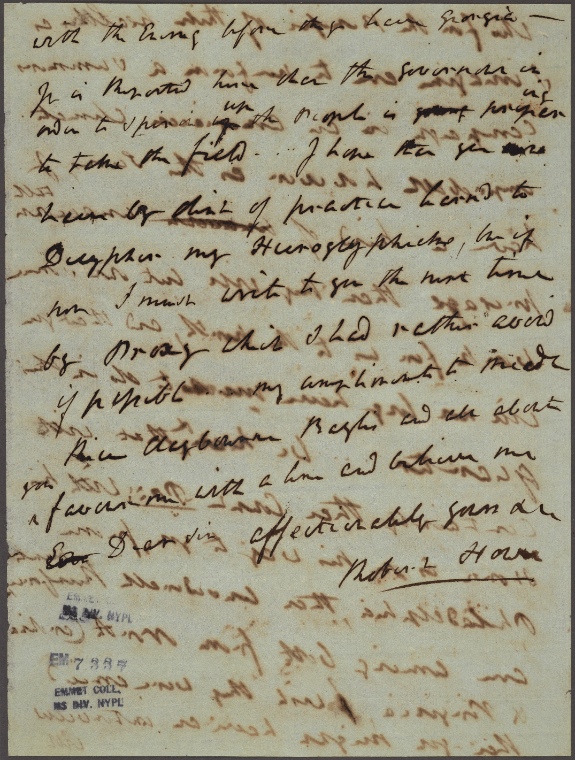 with the Enemy before they leave Georgia —
It is Reported here that the governor in
order to Spirit up the People is prepar
ing
to take the field .. I hope that you
have by dint of practice learnd to
Decypher my Hieroglyphicks, but if
not I must write to you the next time
by Proxy which I had rather avoid
if possible my compliments to
Baylis and all about
you
favour me with a line and believe me
Dear sir affectionately yours &c
Robert Howe
EMMET COLL.
MS DIV. NYPL
EM 7337
EMMET COLL.
MS DIV. NYPL